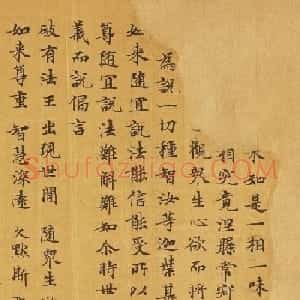 来知是一相一味
相究竟涅槃常寂
觀眾生心欲而將
為說一切種智汝等迦葉甚
如来隨宜說法能信能受所以
尊隨宜說法難解難知尒時世
義而說偈言
破有法王 出現世間 隨眾生
如来尊重 智慧深遠 久默斯